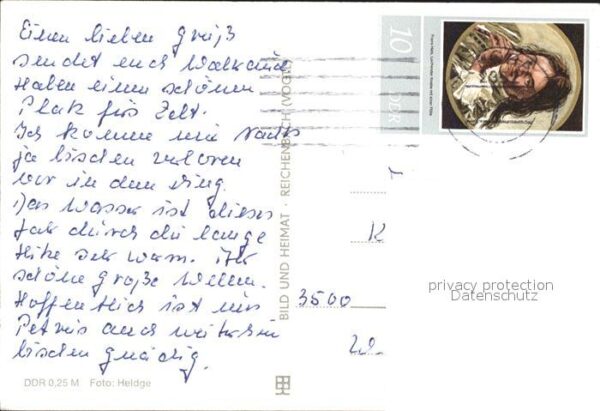 Einen lieben Gruß
sendet euch Waltraud
Haben einen schönen
Platz fürs Zelt.
Ich komme mir nachts
ja bischen verloren
vor in dem Ding.
Das Wasser ist dieses
Jahr durch die lange
Hitze sehr warm.
schöne große Wellen.
Hoffentlich ist uns
Petrus auch weiterhin
bischen gnädig.
DDR 0,25 M Foto: Heldge
BILD UND HEIMAT · REICHENBACH (VOGTL)
10 DDR
K
3500
privacy protection
Datenschutz